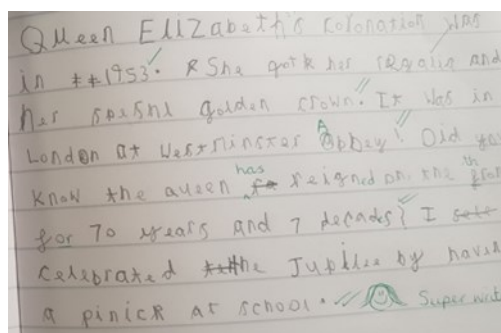 Queen Elizabeth's coronation was
in 1953. She got her regalia and
her speshl golden crown. It was in
London at Westminster Abbey! Did yo
know the queen has reigned on the th
for 70 years and 7 decades? I
celebrated the Jubilee by havin
a pinick at school. Super writ